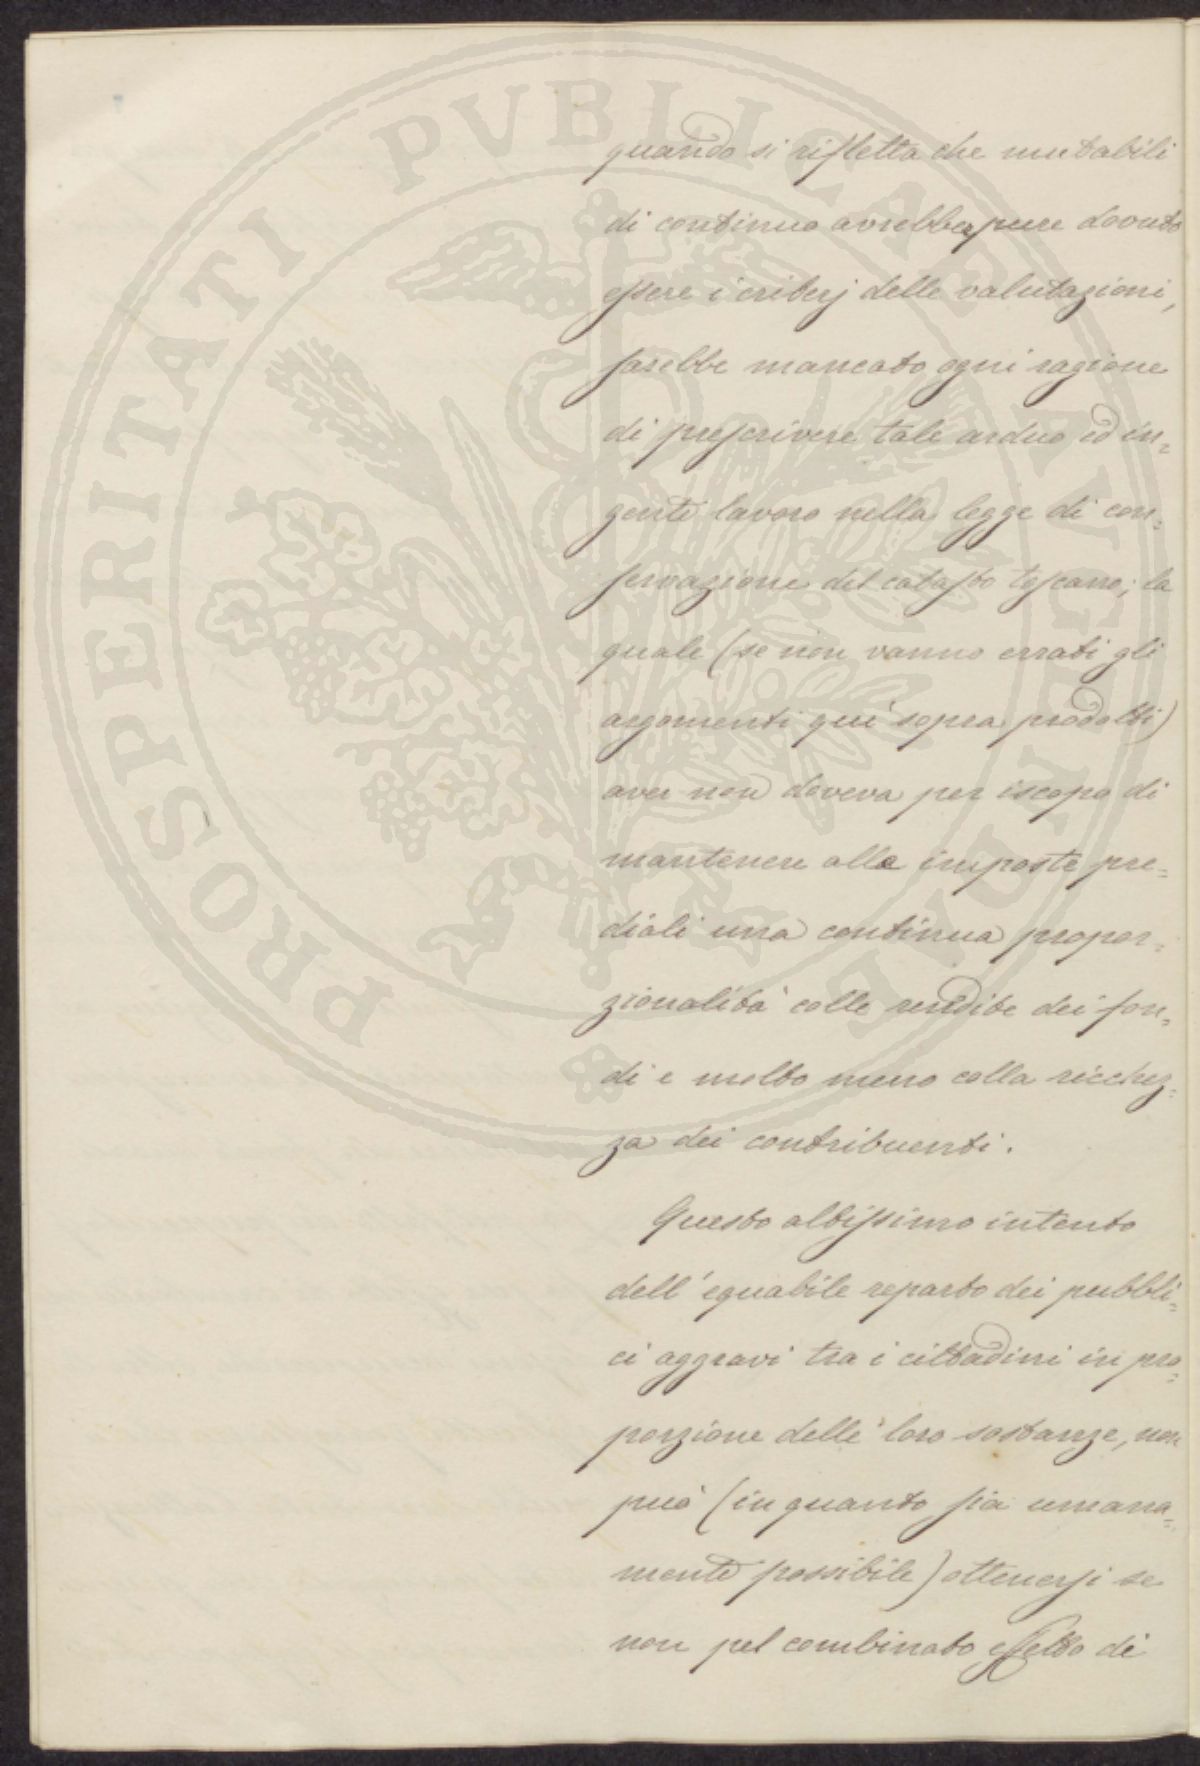 PROSPERITATI PVBLICAE AVGENDAE
quando si rifletta che mutabili
di continuo avrebber pure dovuto
essere i criterj delle valutazioni,
sarebbe mancato ogni ragione
di prescrivere tale arduo ed in=
gente lavoro nella legge di con=
servazione del catasto toscano; la
quale (se non vanno errati gli
argomenti qui sopra prodotti)
aver non doveva per iscopo di
mantenere alle imposte pre=
diali una continua propor=
zionalità colle rendite dei fon=
di e molto meno colla ricchez=
za dei contribuenti.
Questo altissimo intento
dell'equabile reparto dei pubbli=
ci aggravi tra i cittadini in pro=
porzione delle loro sostanze, non
può (in quanto sia umana=
mente possibile) ottenersi se
non pel combinato effetto di